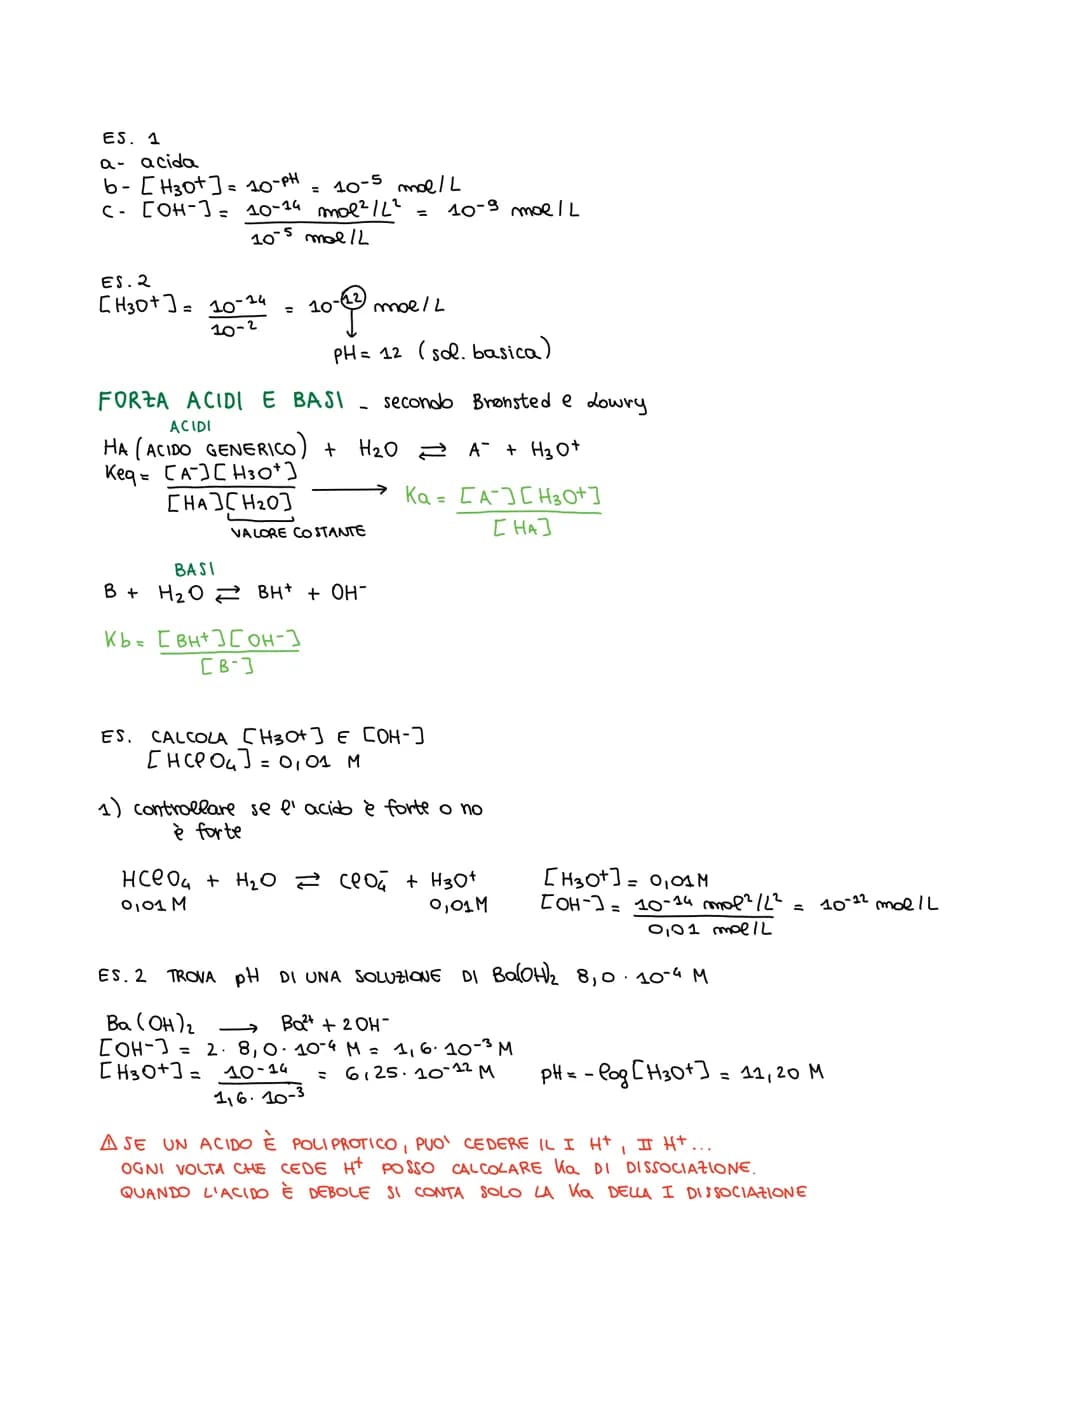 ES. 1
a- acida
b- [H3O+] = 10-pH = 10-5 mol/L
c- [OH-] = 10-14 mol2/L2 = 10-9 mol/L
10-5 mol/L
ES. 2
[H3O+] = 10-14 = 10-12 mol/L
10-2
↓
pH = 12 (sol. basica)
FORZA ACIDI E BASI - secondo Brønsted e Lowry
ACIDI
HA (ACIDO GENERICO) + H2O ⇄ A- + H3O+
Keq = [A-][H3O+]
[HA][H2O]
→ Ka = [A-][H3O+]
[HA]
VALORE COSTANTE
BASI
B + H2O ⇄ BH+ + OH-
Kb = [BH+][OH-]
[B-]
ES. CALCOLA [H3O+] E [OH-]
[HClO4] = 0,01 M
1) controllare se l'acido è forte o no
è forte
HClO4 + H2O ⇄ ClO4- + H3O+ [H3O+] = 0,01M
0,01M 0,01M [OH-] = 10-14 mol2/L2 = 10-12 mol/L
0,01 mol/L
ES. 2 TROVA pH DI UNA SOLUZIONE DI Ba(OH)2 8,0 · 10-4 M
Ba(OH)2 → Ba2+ + 2OH-
[OH-] = 2 · 8,0 · 10-4 M = 1,6 · 10-3 M
[H3O+] = 10-14 = 6,25 · 10-12 M pH = -log[H3O+] = 11,20 M
1,6 · 10-3
⚠ SE UN ACIDO È POLIPROTICO, PUO' CEDERE IL I H+, II H+...
OGNI VOLTA CHE CEDE H+ POSSO CALCOLARE Ka DI DISSOCIAZIONE.
QUANDO L'ACIDO È DEBOLE SI CONTA SOLO LA Ka DELLA I DISSOCIAZIONE